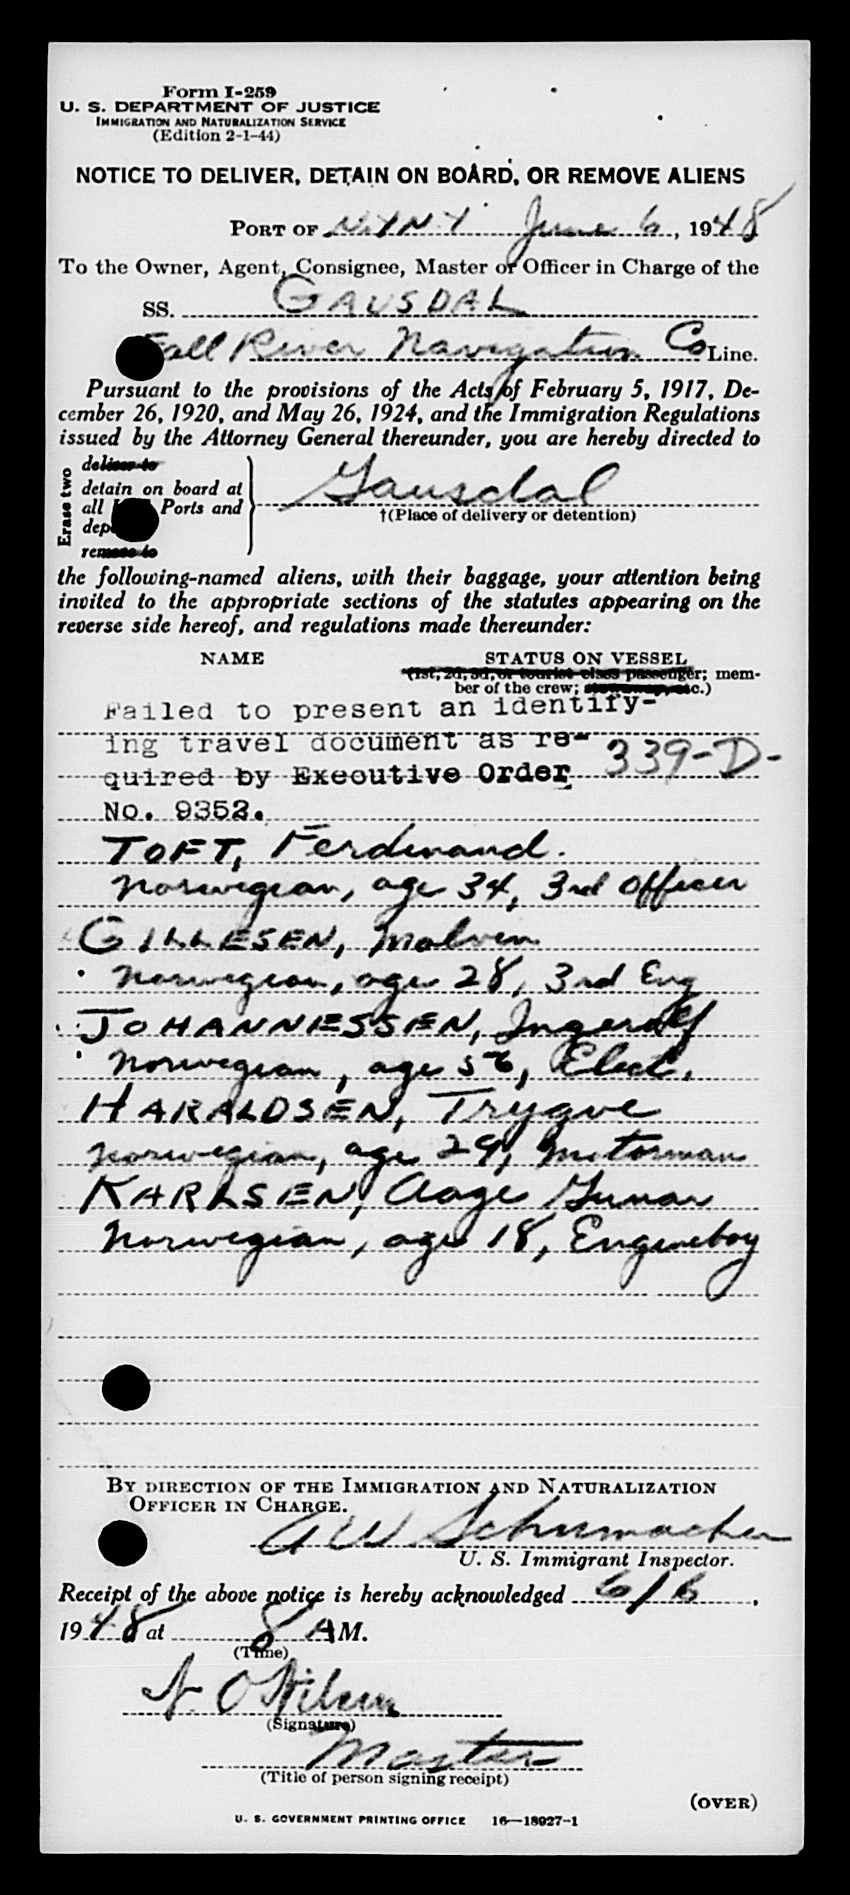 Form I-259
U. S. DEPARTMENT OF JUSTICE
IMMIGRATION AND NATURALIZATION SERVICE
(Edition 2-1-44)
NOTICE TO DELIVER, DETAIN ON BOARD, OR REMOVE ALIENS
PORT OF N.Y.N.Y. June 6, 1948
To the Owner, Agent, Consignee, Master or Officer in Charge of the
SS. GAUSDAL
Fall River Navigation Co Line.
Pursuant to the provisions of the Acts of February 5, 1917, De-
cember 26, 1920, and May 26, 1924, and the Immigration Regulations
issued by the Attorney General thereunder, you are hereby directed to
Erase two
deliver to
detain on board at
all Ports and
remove to
Gausdal
†(Place of delivery or detention)
the following-named aliens, with their baggage, your attention being
invited to the appropriate sections of the statutes appearing on the
reverse side hereof, and regulations made thereunder:
NAME STATUS ON VESSEL
(1st, 2d, 3d, or tourist class passenger; mem-
ber of the crew; stowaway, etc.)
Failed to present an identify-
ing travel document as re-
quired by Executive Order
No. 9352.
339-D-
TOFT, Ferdinand.
Norwegian, age 34, 3rd Officer
GILLESEN, Malvin
Norwegian, age 28, 3rd Eng
JOHANNESSEN, Ingerolf
Norwegian, age 56, Elect.
HARALDSEN, Trygve
Norwegian, age 29, Motorman
KARLSEN, Aage Gunar
Norwegian, age 18, Engineboy
BY DIRECTION OF THE IMMIGRATION AND NATURALIZATION
OFFICER IN CHARGE.
A W Schumacher
U. S. Immigrant Inspector.
Receipt of the above notice is hereby acknowledged 6/6,
1948 at 8 AM.
(Time)
N. O Nilsen
(Signature)
Master
(Title of person signing receipt)
(OVER)
U. S. GOVERNMENT PRINTING OFFICE 16—18927-1